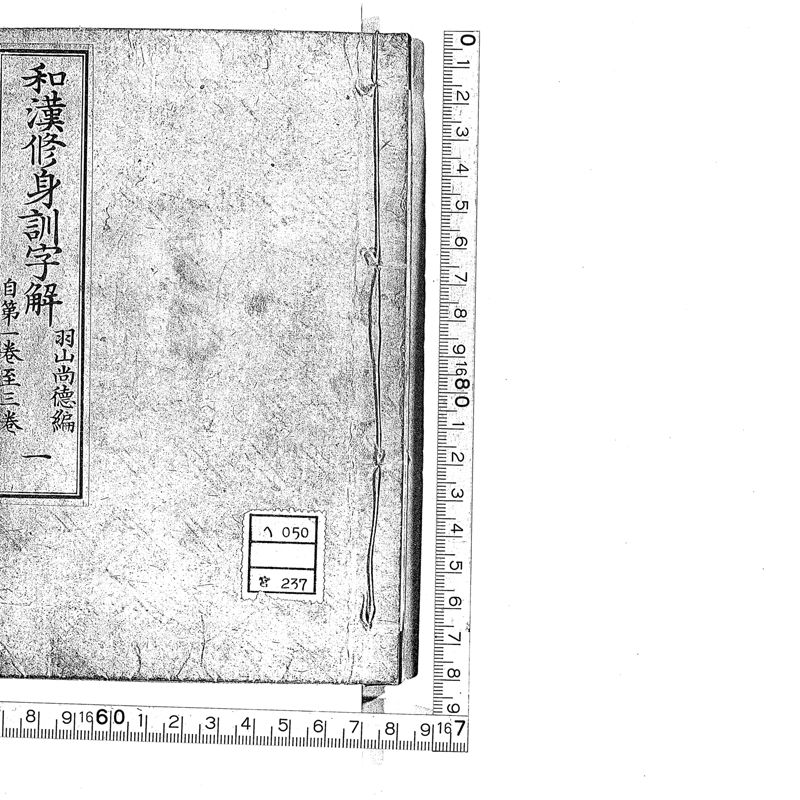 和漢修身訓字解
羽山尚德編
自第一卷至三卷
一
ヘ 050
237
0 1 2 3 4 5 6 7 8 9 16 80 1 2 3 4 5 6 7 8 9
8 9 16 60 1 2 3 4 5 6 7 8 9 16 7